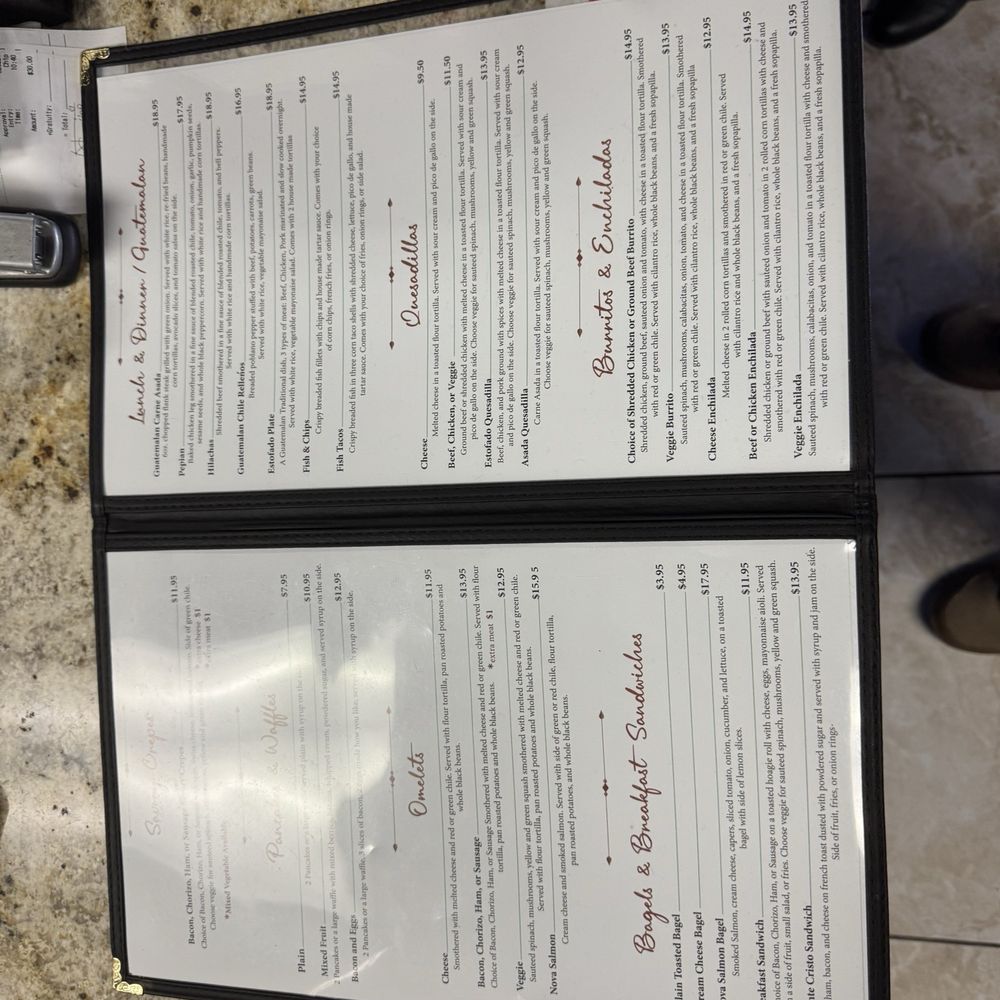 Approval:
Entry:
Time: 10:40
Amount: $30.00
+Gratuity:
= Total:
Bacon, Chorizo, Ham, or Sausage $11.95
Side of green chile
Choice of Bacon, Chorizo, Ham, or
Choose veggie for
*extra meat $1
*Mixed Vegetable
Waffles
Plain $7.95
2 Pancakes
Mixed Fruit $10.95
2 Pancakes or a large waffle with mixed powdered sugar, and served syrup on the side.
Bacon and Eggs $12.95
2 Pancakes or a large waffle, 3 slices of bacon, how you like, syrup on the side.
Omelets
Cheese $11.95
Smothered with melted cheese and red or green chile. Served with flour tortilla, pan roasted potatoes and
whole black beans.
Bacon, Chorizo, Ham, or Sausage $13.95
Choice of Bacon, Chorizo, Ham, or Sausage Smothered with melted cheese and red or green chile. Served with flour
tortilla, pan roasted potatoes and whole black beans. *extra meat $1
Veggie $12.95
Sauteed spinach, mushrooms, yellow and green squash smothered with melted cheese and red or green chile.
Served with flour tortilla, pan roasted potatoes and whole black beans.
Nova Salmon $15.9 5
Cream cheese and smoked salmon. Served with side of green or red chile, flour tortilla,
pan roasted potatoes, and whole black beans.
Bagels & Breakfast Sandwiches
lain Toasted Bagel $3.95
ream Cheese Bagel $4.95
ova Salmon Bagel $17.95
Smoked Salmon, cream cheese, capers, sliced tomato, onion, cucumber, and lettuce, on a toasted
bagel with side of lemon slices.
eakfast Sandwich $11.95
hoice of Bacon, Chorizo, Ham, or Sausage on a toasted hoagie roll with cheese, eggs, mayonnaise aioli. Served
a side of fruit, small salad, or fries. Choose veggie for sauteed spinach, mushrooms, yellow and green squash.
nte Cristo Sandwich $13.95
ham, bacon, and cheese on french toast dusted with powdered sugar and served with syrup and jam on the side.
Side of fruit, fries, or onion rings.
Lunch & Dinner / Guatemalan
Guatemalan Carne Asada $18.95
6oz. chopped flank steak grilled with green onion. Served with white rice, re-fried beans, handmade
corn tortillas, avocado slices, and tomato salsa on the side.
Pepian $17.95
Baked chicken leg smothered in a fine sauce of blended roasted chile, tomato, onion, garlic, pumpkin seeds,
sesame seeds, and whole black peppercorn. Served with white rice and handmade corn tortillas.
Hilachas $18.95
Shredded beef smothered in a fine sauce of blended roasted chile, tomato, and bell peppers.
Served with white rice and handmade corn tortillas.
Guatemalan Chile Rellenos $16.95
Breaded poblano pepper stuffed with beef, potatoes, carrots, green beans.
Served with white rice, vegetable mayonaise salad.
Estofado Plate $18.95
A Guatemalan Traditional dish, 3 types of meat: Beef, Chicken, Pork marinated and slow cooked overnight.
Served with white rice, vegetable mayonaise salad. Comes with 2 house made tortillas
Fish & Chips $14.95
Crispy breaded fish fillets with chips and house made tartar sauce. Comes with your choice
of corn chips, french fries, or onion rings.
Fish Tacos $14.95
Crispy breaded fish in three corn taco shells with shredded cheese, lettuce, pico de gallo, and house made
tartar sauce. Comes with your choice of fries, onion rings, or side salad.
Quesadillas
Cheese $9.50
Melted cheese in a toasted flour tortilla. Served with sour cream and pico de gallo on the side.
Beef, Chicken, or Veggie $11.50
Ground beef or shredded chicken with melted cheese in a toasted flour tortilla. Served with sour cream and
pico de gallo on the side. Choose veggie for sauteed spinach, mushrooms, yellow and green squash.
Estofado Quesadilla $13.95
Beef, chicken, and pork ground with spices with melted cheese in a toasted flour tortilla. Served with sour cream
and pico de gallo on the side. Choose veggie for sauteed spinach, mushrooms, yellow and green squash.
Asada Quesadilla $12.95
Carne Asada in a toasted flour tortilla. Served with sour cream and pico de gallo on the side.
Choose veggie for sauteed spinach, mushrooms, yellow and green squash.
Burritos & Enchiladas
Choice of Shredded Chicken or Ground Beef Burrito $14.95
Shredded chicken, ground beef, sauteed onion and tomato, with cheese in a toasted flour tortilla. Smothered
with red or green chile. Served with cilantro rice, whole black beans, and a fresh sopapilla.
Veggie Burrito $13.95
Sauteed spinach, mushrooms, calabacitas, onion, tomato, and cheese in a toasted flour tortilla. Smothered
with red or green chile. Served with cilantro rice, whole black beans, and a fresh sopapilla
Cheese Enchilada $12.95
Melted cheese in 2 rolled corn tortillas and smothered in red or green chile. Served
with cilantro rice and whole black beans, and a fresh sopapilla.
Beef or Chicken Enchilada $14.95
Shredded chicken or ground beef with sauteed onion and tomato in 2 rolled corn tortillas with cheese and
smothered with red or green chile. Served with cilantro rice, whole black beans, and a fresh sopapilla.
Veggie Enchilada $13.95
Sauteed spinach, mushrooms, calabacitas, onion, and tomato in a toasted flour tortilla with cheese and smothered
with red or green chile. Served with cilantro rice, whole black beans, and a fresh sopapilla.